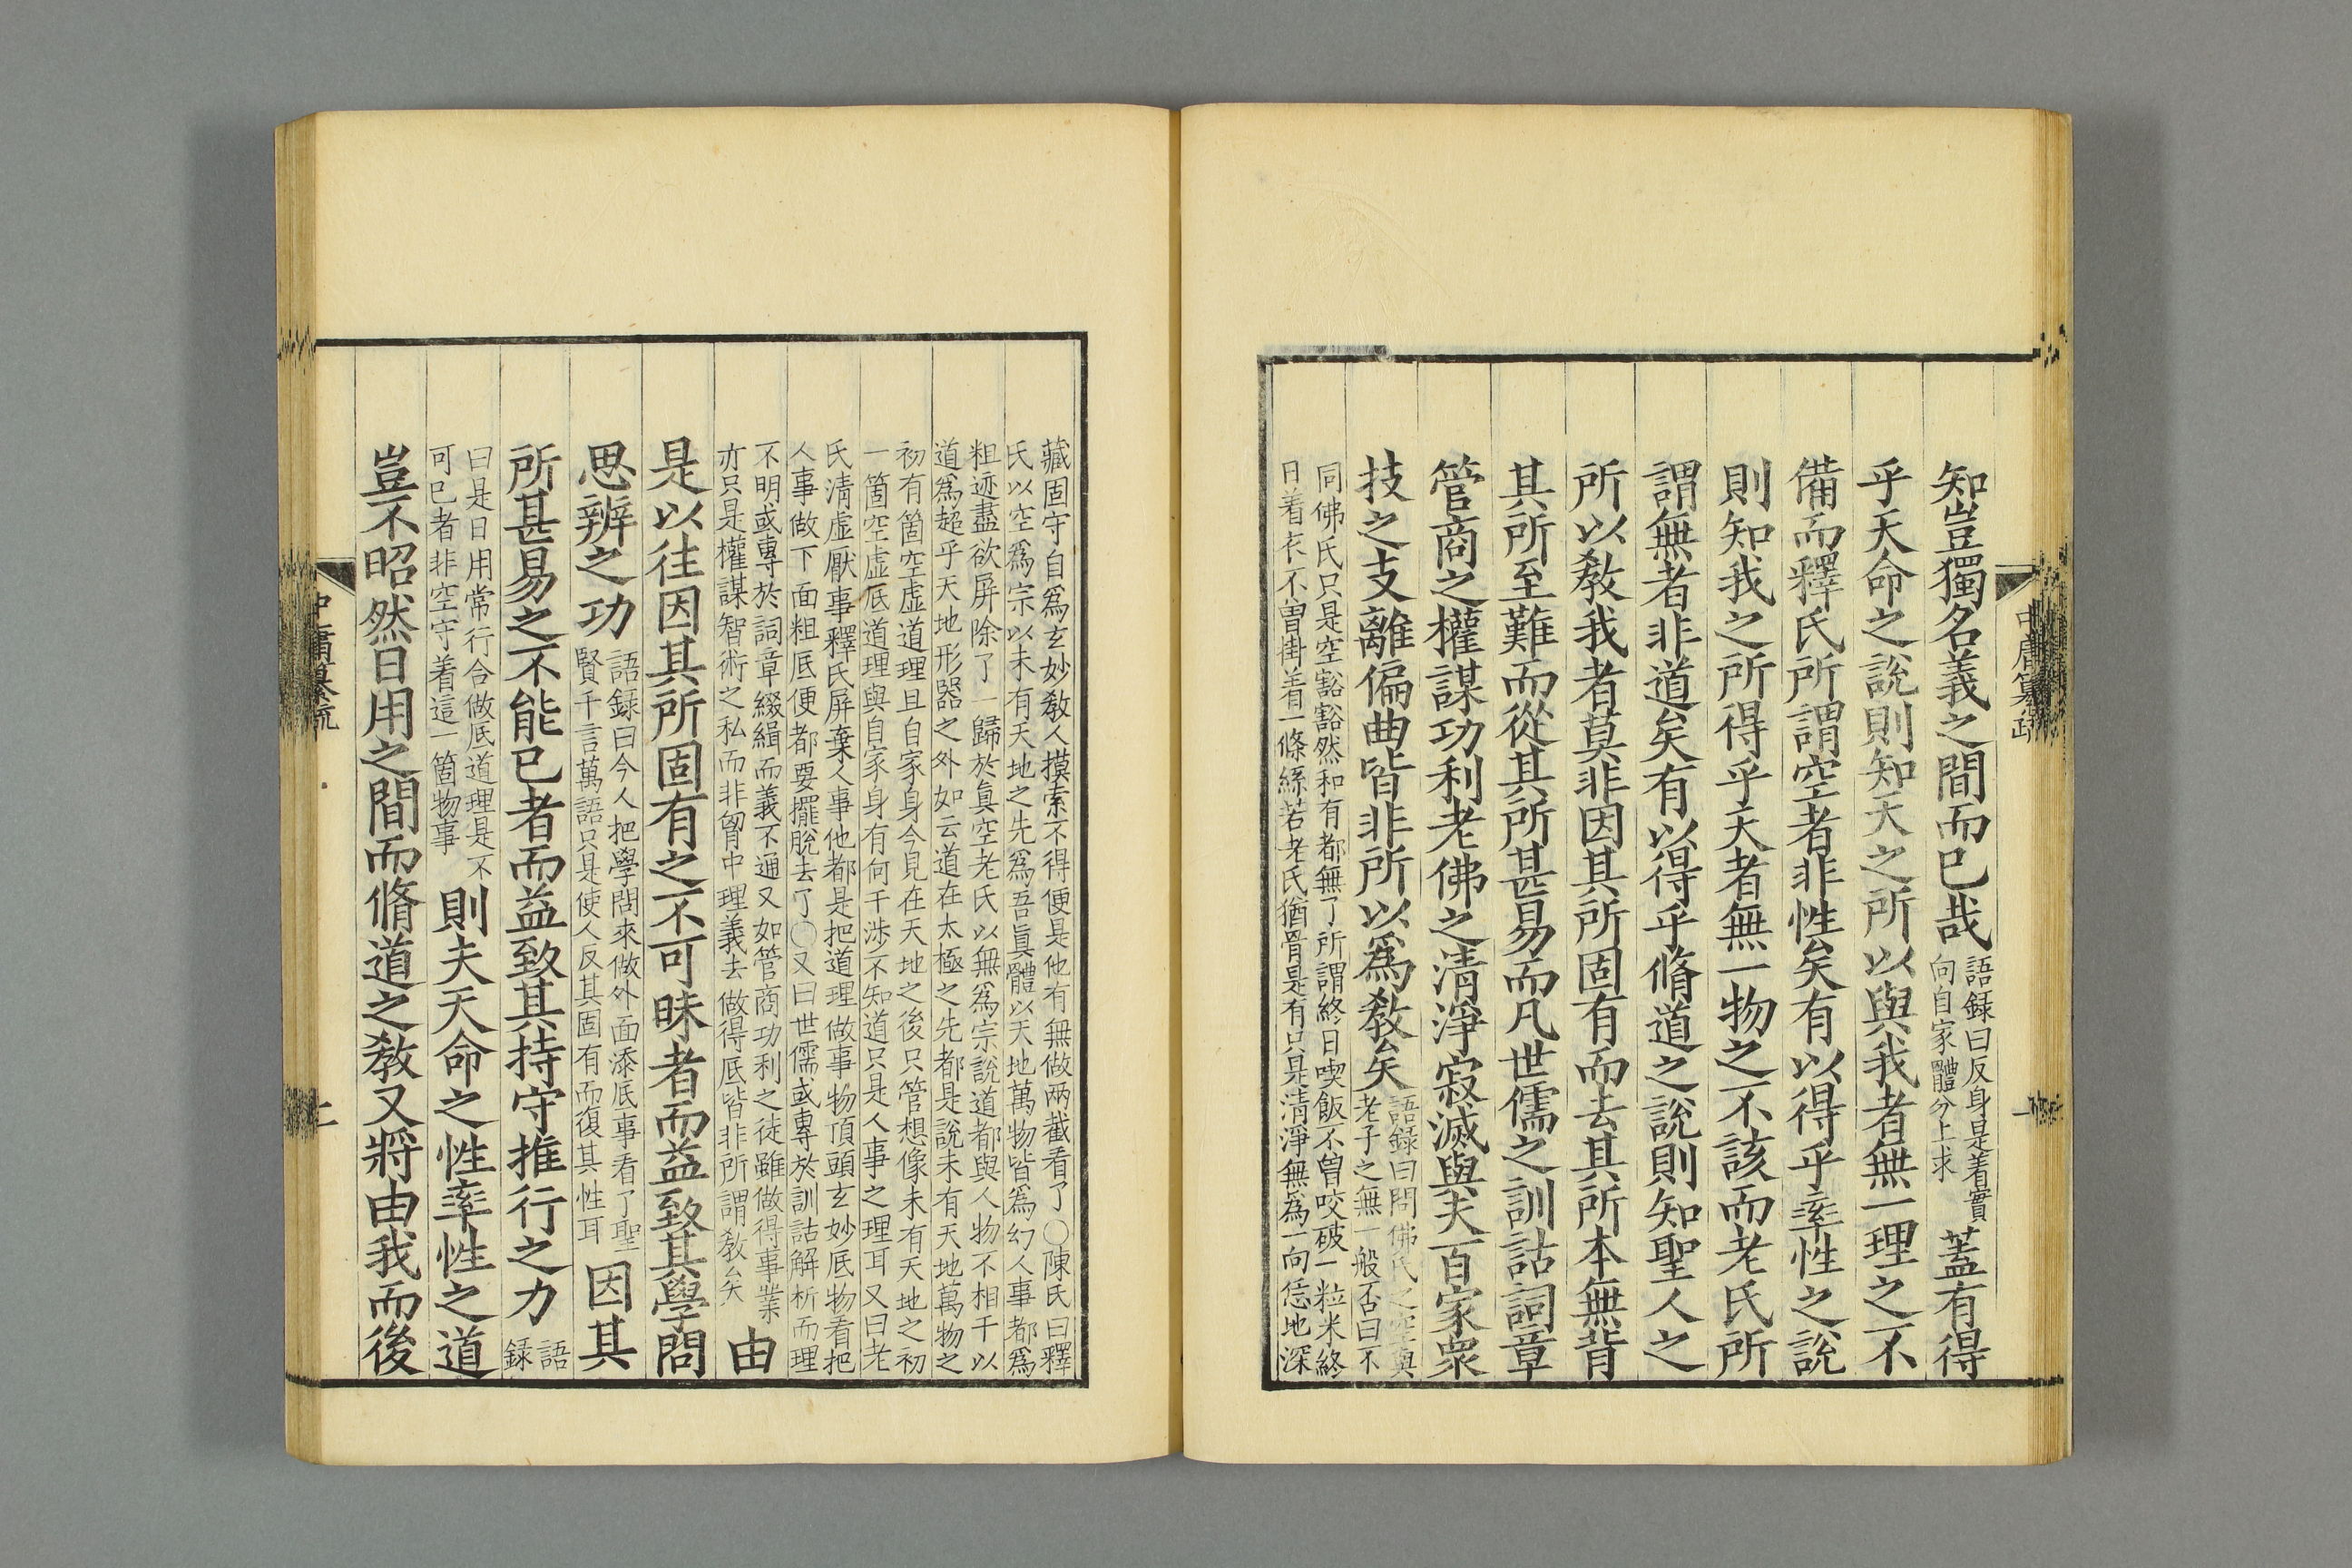 中庸纂疏
知豈獨名義之間而已哉語録曰反身是着實
向自家體分上求蓋有得
乎天命之說則知天之所以與我者無一理之不
備而釋氏所謂空者非性矣有以得乎率性之說
則知我之所得乎天者無一物之不該而老氏所
謂無者非道矣有以得乎脩道之說則知聖人之
所以敎我者莫非因其所固有而去其所本無背
其所至難而從其所甚易而凡世儒之訓詁詞章
管商之權謀功利老佛之清淨寂滅與夫百家衆
技之支離偏曲皆非所以爲敎矣語録曰問佛氏之空與
老子之無一般否曰不
同佛氏只是空豁豁然和有都無了所謂終日喫飯不曽咬破一粒米終
日着衣不曽掛着一條絲若老氏猶骨是有只是清淨無爲一向恁地深
藏固守自爲玄妙敎人摸索不得便是他有無做两截看了○陳氏曰釋
氏以空爲宗以未有天地之先爲吾眞體以天地萬物皆爲幻人事都爲
粗迹盡欲屏除了一歸於眞空老氏以無爲宗說道都與人物不相干以
道爲超乎天地形器之外如云道在太極之先都是說未有天地萬物之
初有箇空虛道理且自家身今見在天地之後只管想像未有天地之初
一箇空虛底道理與自家身有何干渉不知道只是人事之理耳又曰老
氏清虛厭事釋氏屏棄人事他都是把道理做事物頂頭玄妙底物看把
人事做下面粗底便都要擺脫去了○又曰世儒或專於訓詁解析而理
不明或專於詞章綴緝而義不通又如管商功利之徒雖做得事業
亦只是權謀智術之私而非胷中理義去做得底皆非所謂敎矣由
是以往因其所固有之不可昧者而益致其學問
思辨之功語録曰今人把學問來做外面添底事看了聖
賢千言萬語只是使人反其固有而復其性耳因其
所甚易之不能已者而益致其持守推行之力語
録
曰是日用常行合做底道理是不
可已者非空守着這一箇物事則夫天命之性率性之道
豈不昭然日用之間而脩道之敎又將由我而後
中庸纂疏